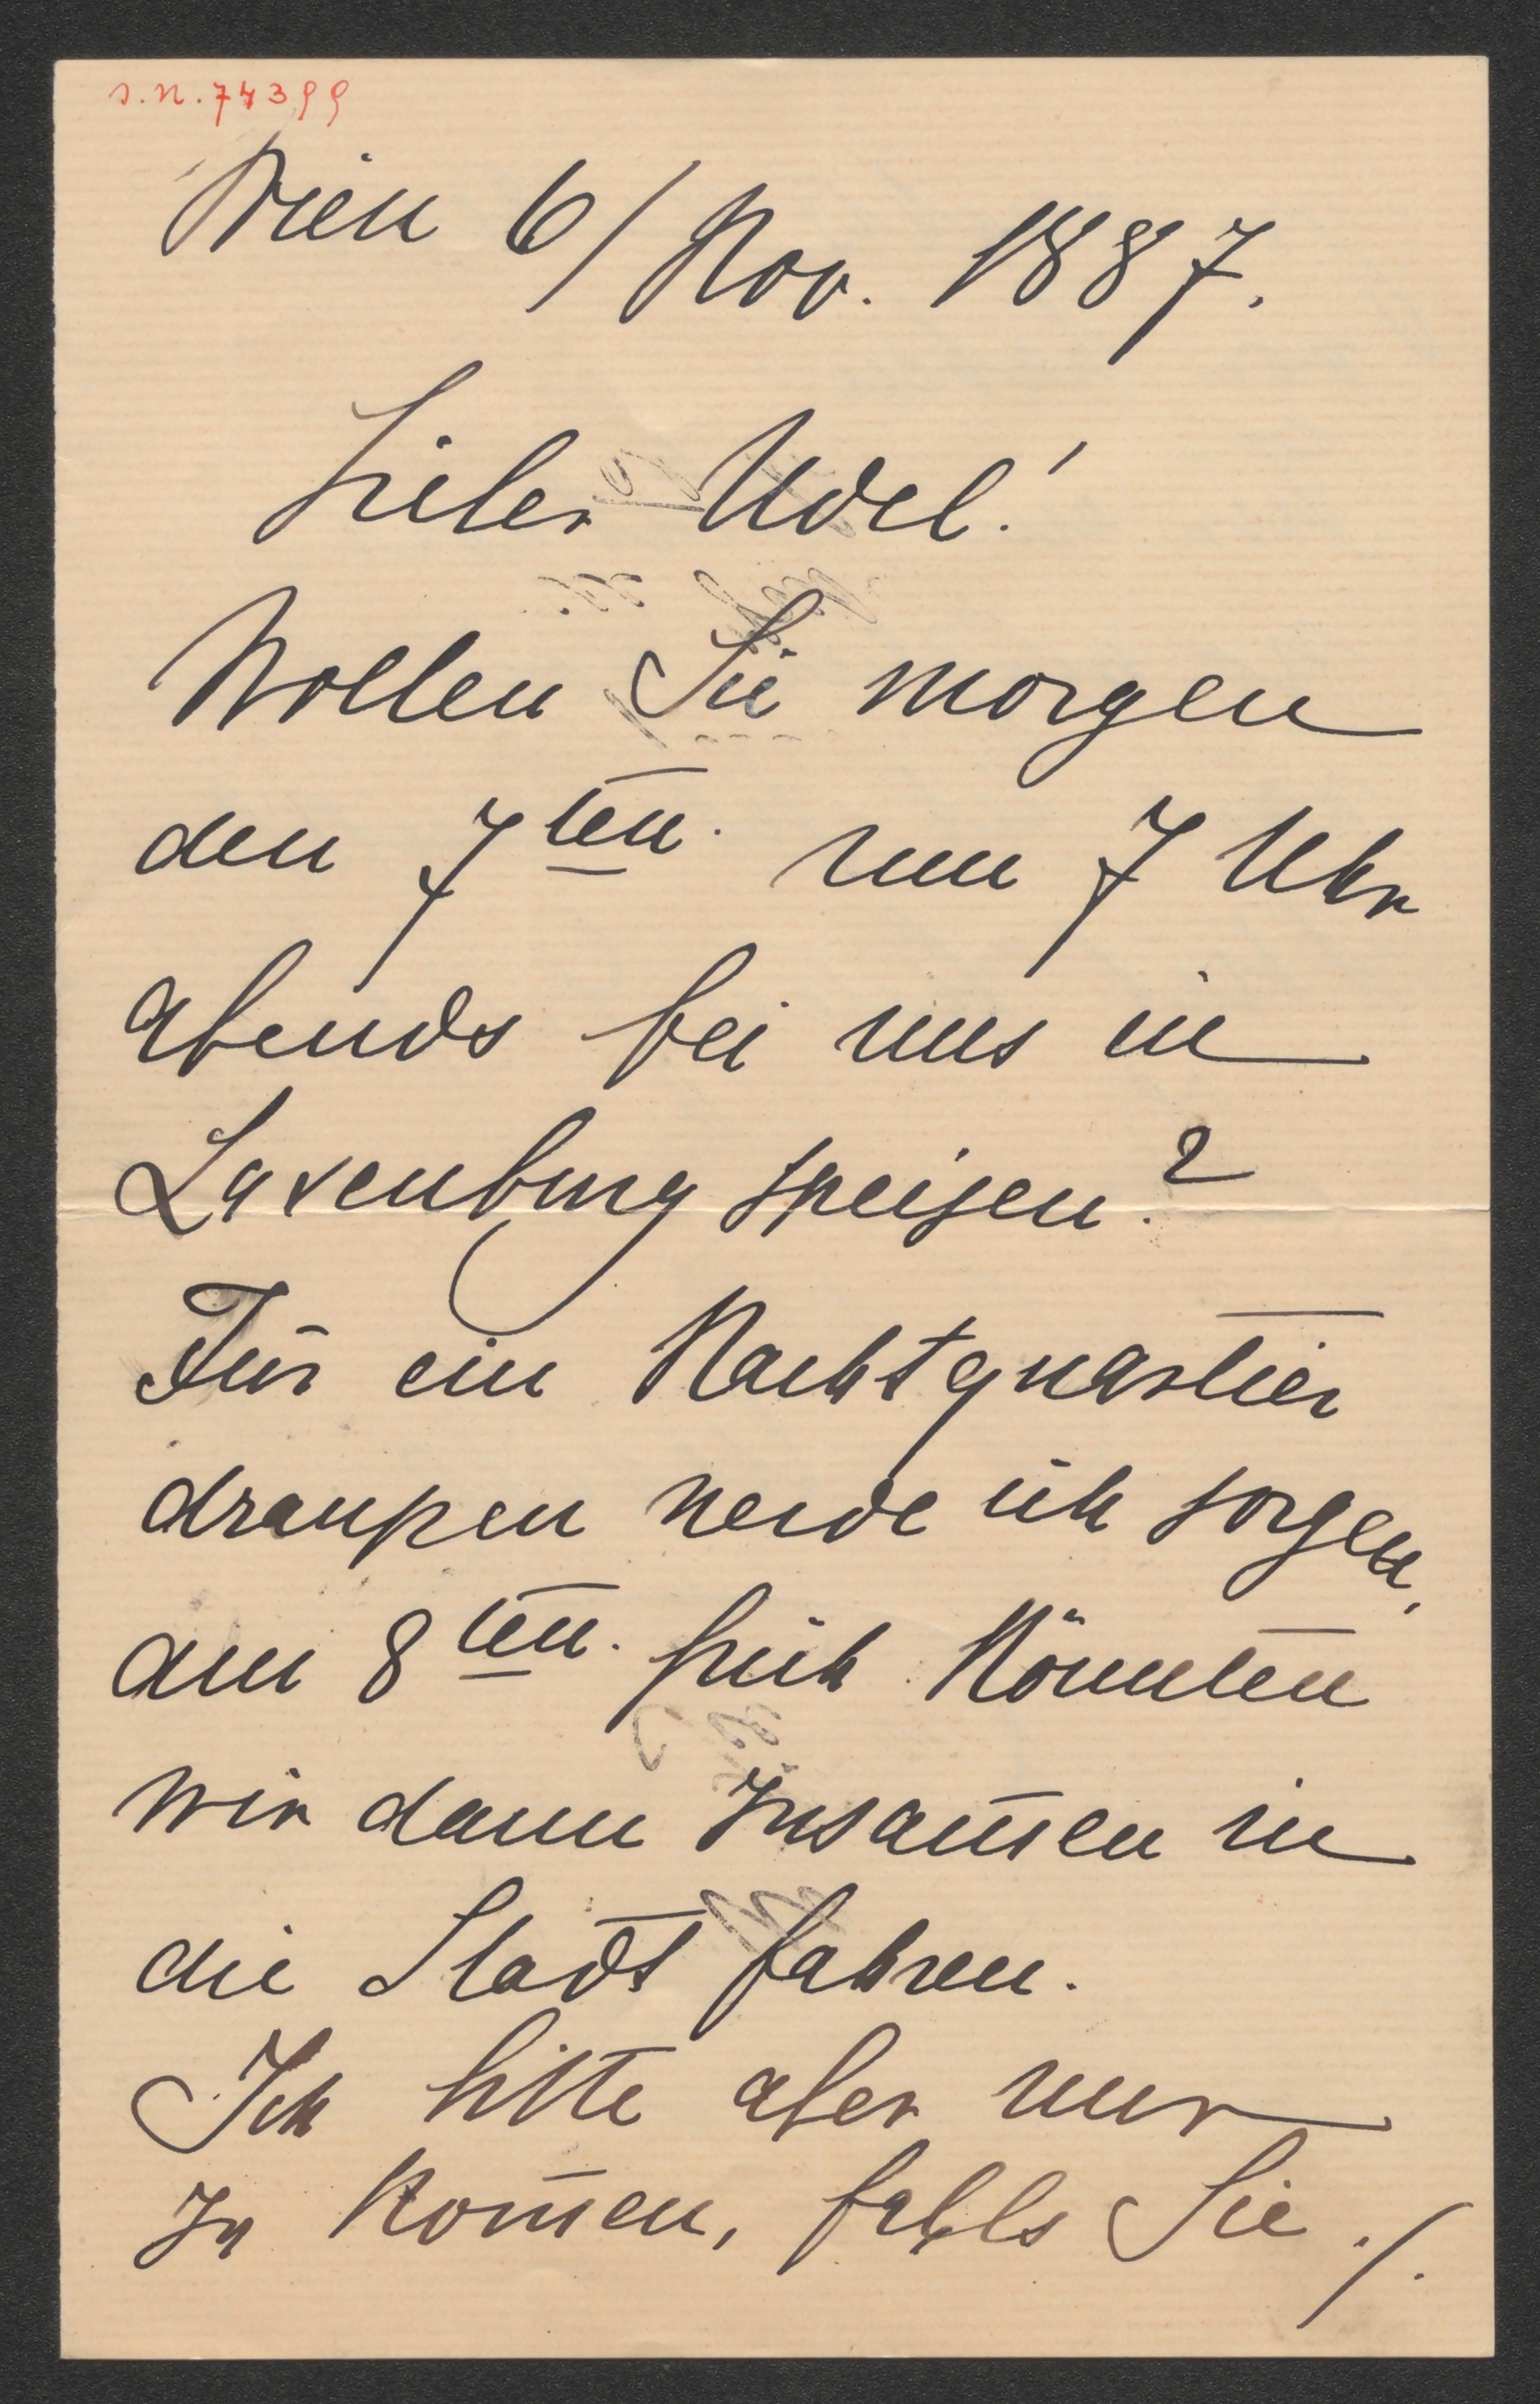 I. N. 74399
Wien 6/ Nov. 1887.
Lieber Udel!
Wollen Sie morgen
den 7ten. um 7 Uhr
Abends bei uns in
Laxenburg speisen?
Für ein Nachtquartier
draußen werde ich sorgen,
am 8ten. früh könnten
wir dann zusam̄en in
die Stadt fahren.
Ich bitte aber nur
zu kom̄en, falls Sie ./.